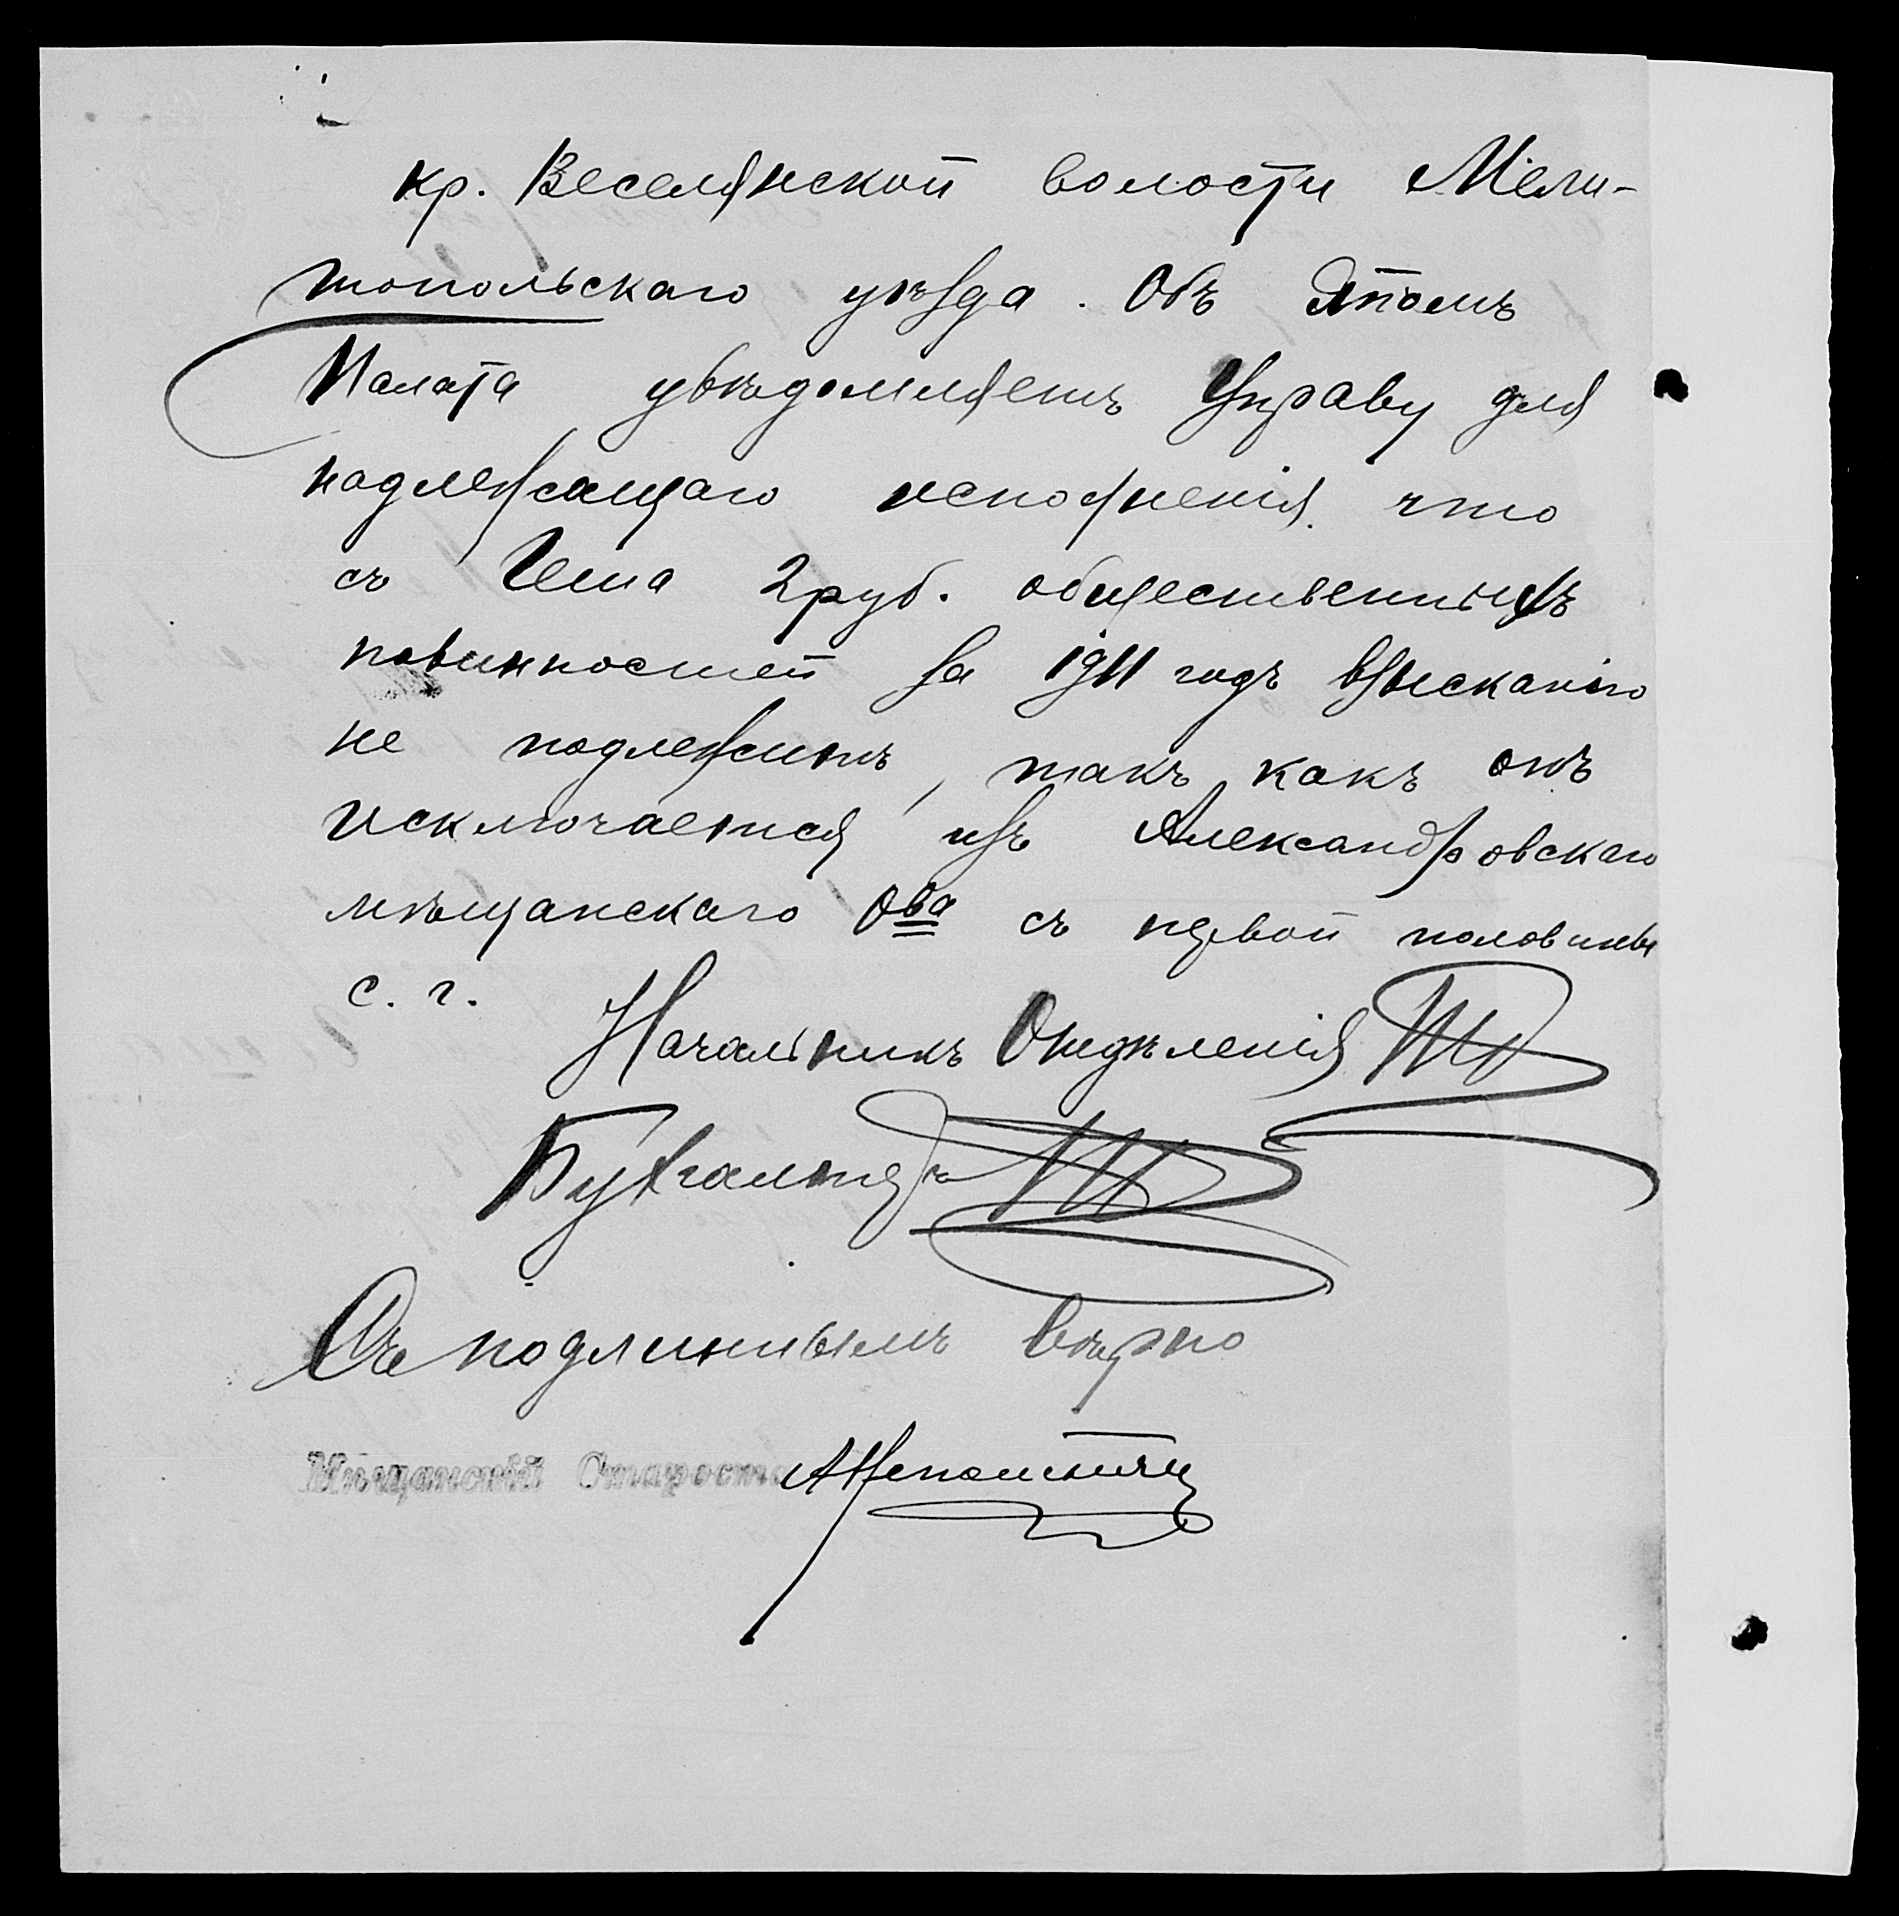 кр. Веселянской волости Мели-
топольскаго уѣзда. Объ этомъ
Палата увѣдомляетъ Управу для
надлежащаго исполненія, что
съ 2 руб. общественныхъ
повинностей за 1911 годъ взысканію
не подлежитъ, такъ какъ онъ
исключается изъ Александровскаго
мѣщанскаго Ова съ первой половины
с. г.
Начальникъ Отдѣленія
Бухгалтеръ
Съ подлиннымъ вѣрно
Мѣщанскій Староста